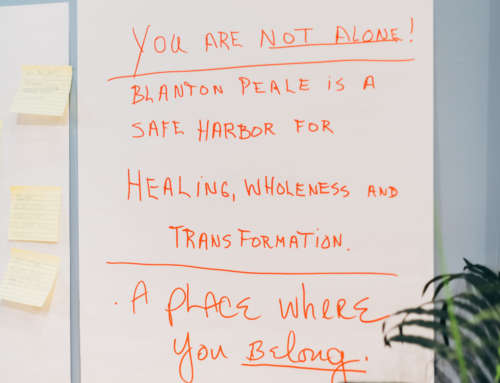 YOU ARE NOT ALONE!
BLANTON PEALE IS A
SAFE HARBOR FOR
HEALING, WHOLENESS AND
TRANSFORMATION.
. A PLACE WHERE
YOU BELONG.